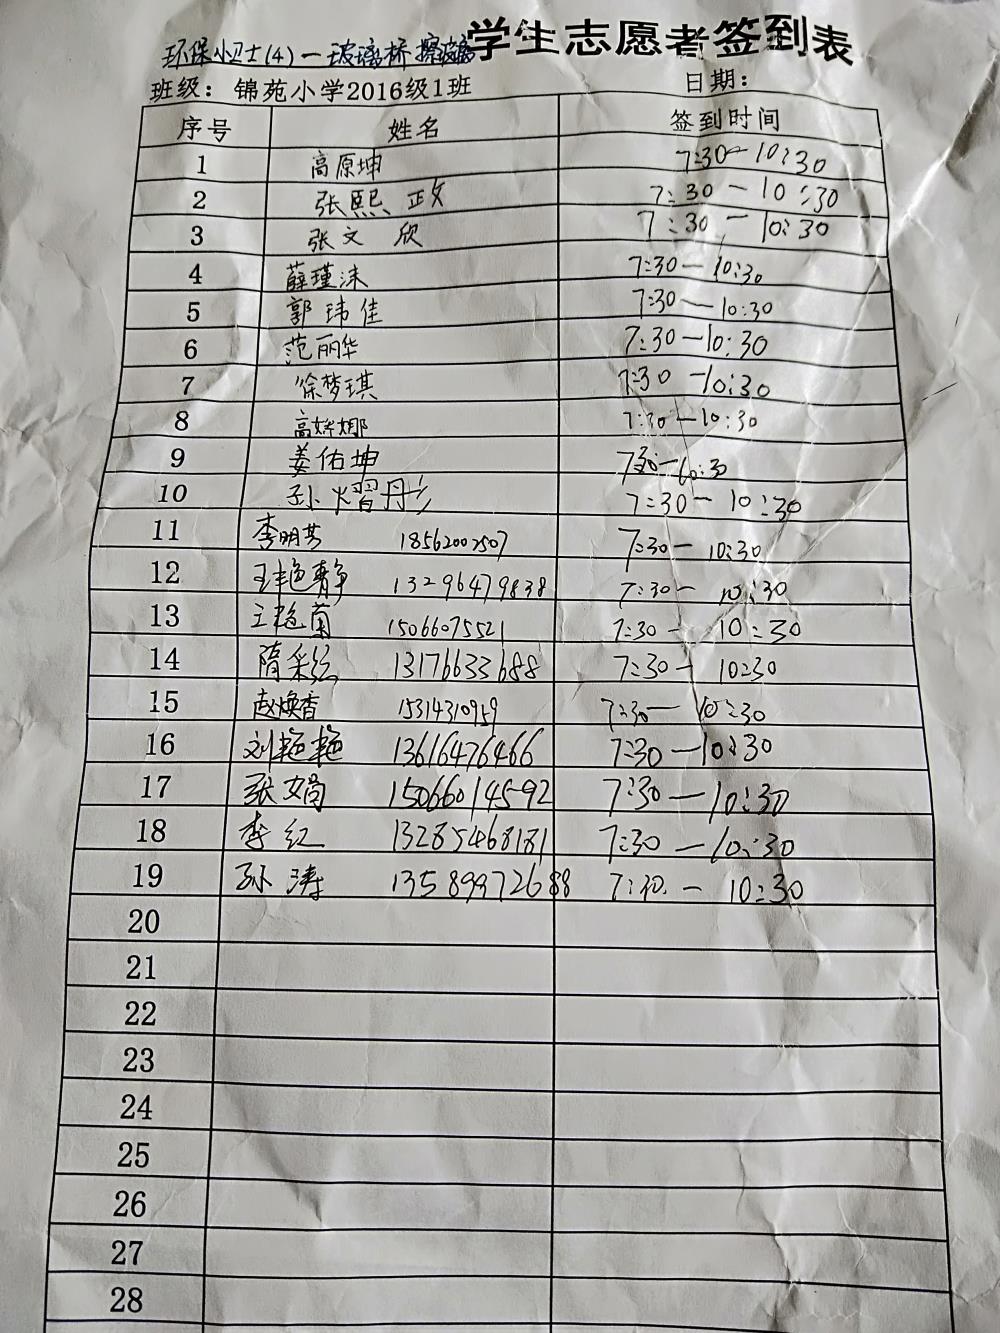 环保小卫士(4)一玻璃桥擦玻璃 学生志愿者签到表
班级：锦苑小学2016级1班 日期：
序号 姓名 签到时间
1 高原坤 7:30—10:30
2 张熙政 7:30—10:30
3 张文欣 7:30—10:30
4 薛瑾沫 7:30—10:30
5 郭玮佳 7:30—10:30
6 范丽华 7:30—10:30
7 徐梦琪 7:30—10:30
8 高婷娜 7:30—10:30
9 姜佑坤 7:30—10:30
10 孙熠彤 7:30—10:30
11 李明芳 18562002507 7:30—10:30
12 王艳静 13296479838 7:30—10:30
13 王艳菊 15066075521 7:30—10:30
14 隋采丝 13176633688 7:30—10:30
15 赵焕香 15314310959 7:30—10:30
16 刘艳艳 13616476466 7:30—10:30
17 张娟 15066014592 7:30—10:30
18 李红 13285468181 7:30—10:30
19 孙涛 13589972688 7:30—10:30
20
21
22
23
24
25
26
27
28